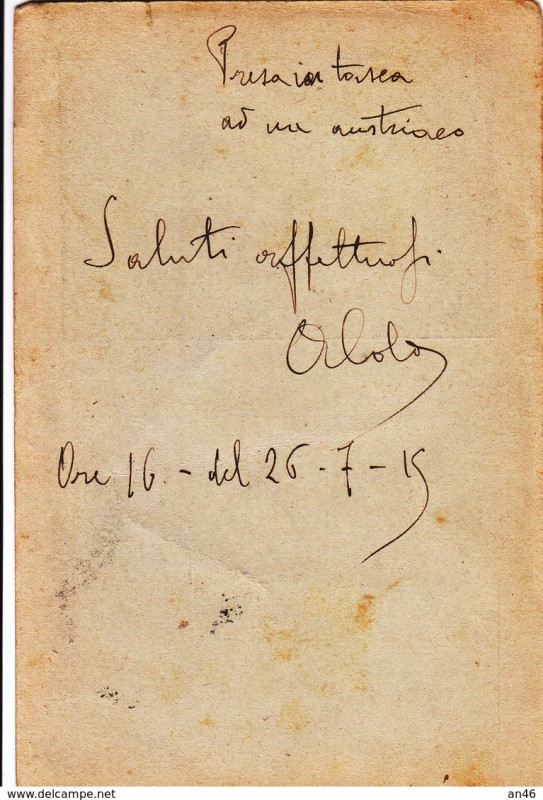 Presa in tasca
ad un austriaco
Saluti affettuosi
Ore 16. - del 26 - 7 - 15
www.delcampe.net
an46